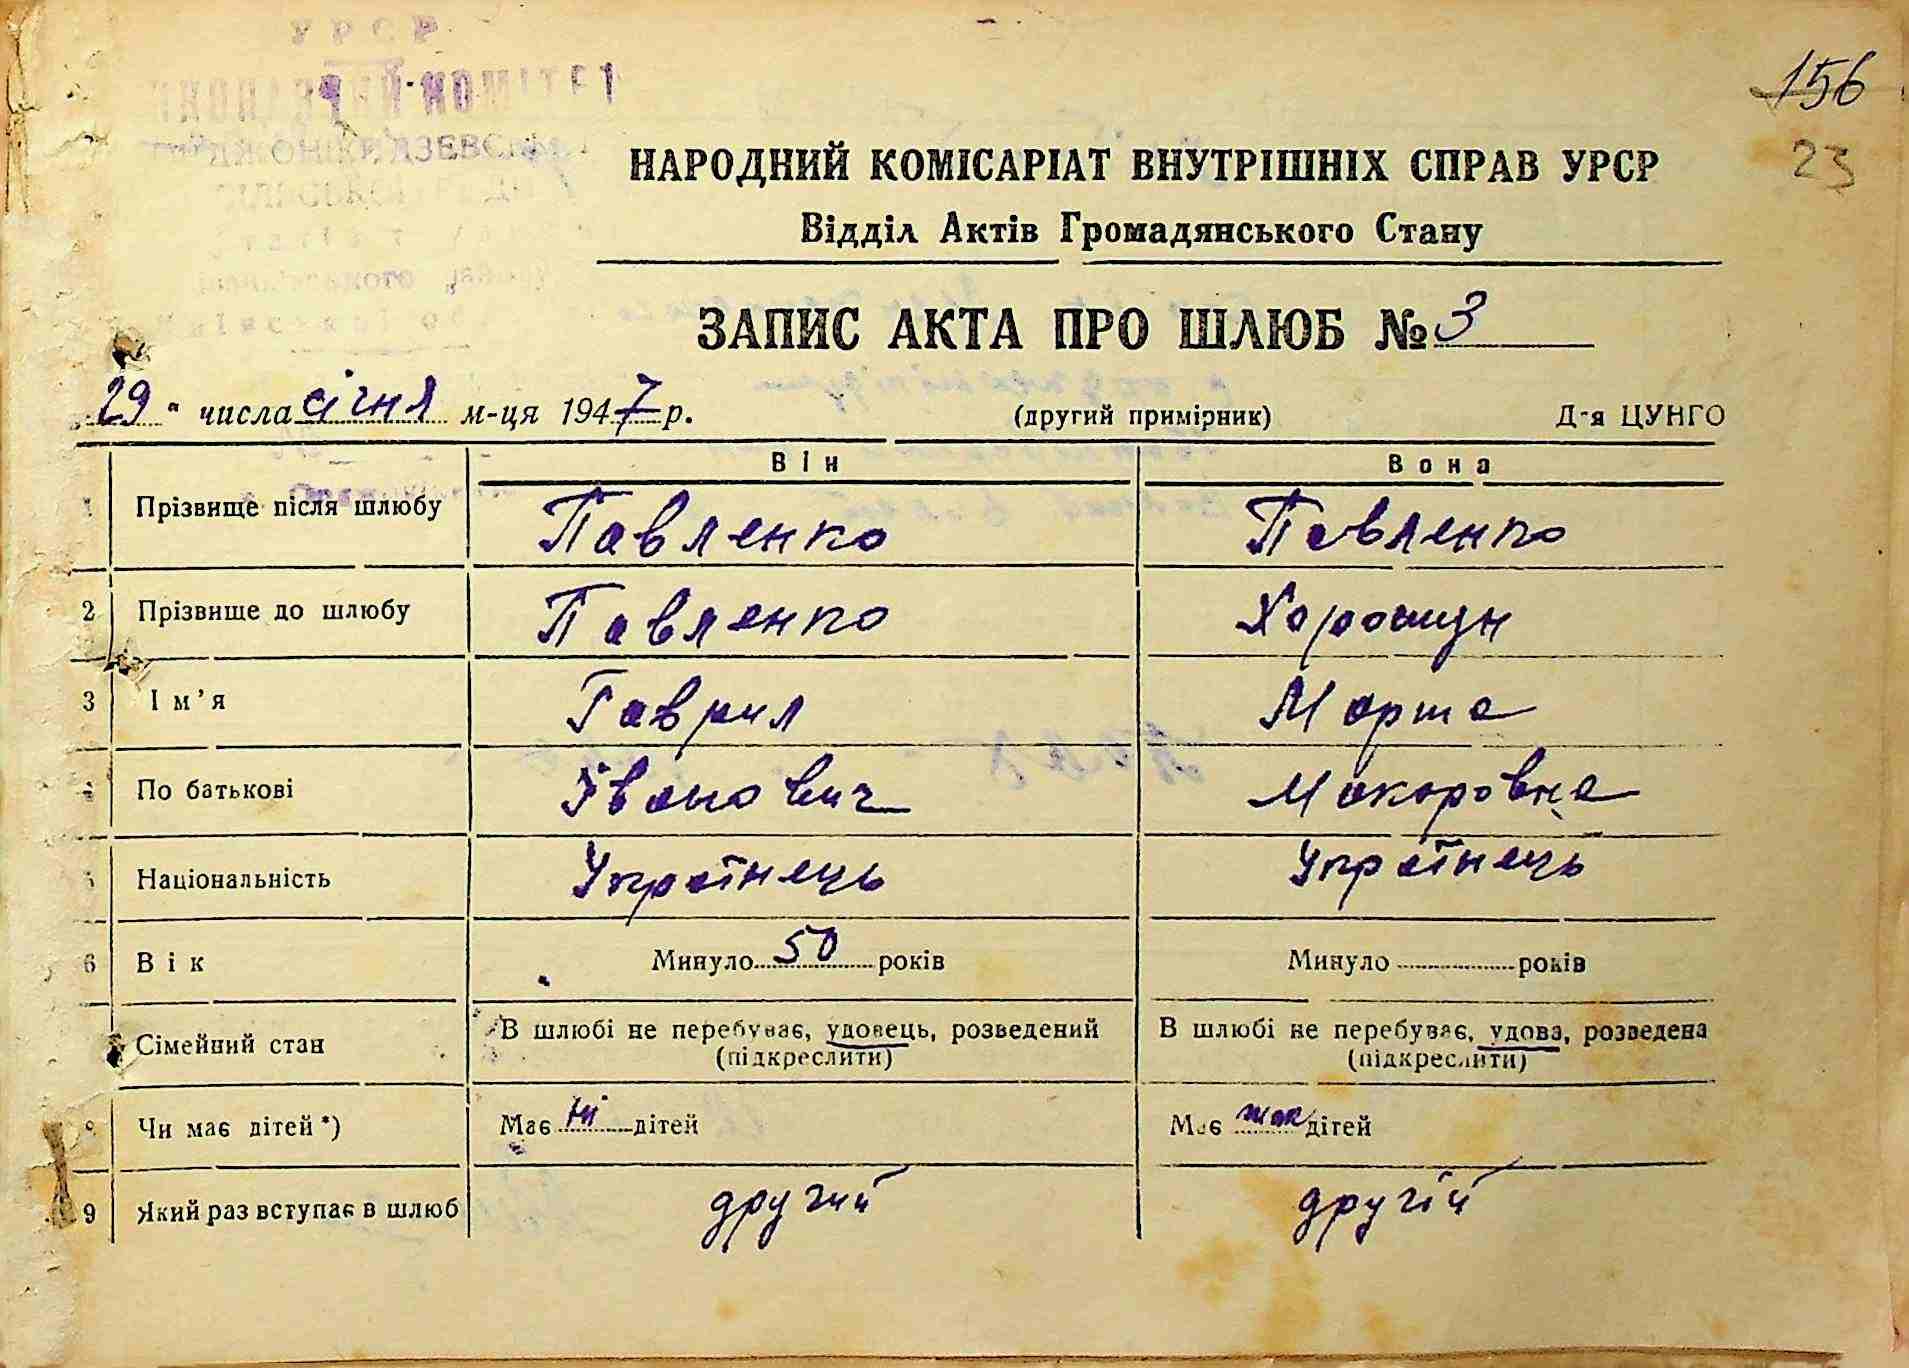 156
23
НАРОДНИЙ КОМІСАРІАТ ВНУТРІШНІХ СПРАВ УРСР
Відділ Актів Громадянського Стану
ЗАПИС АКТА ПРО ШЛЮБ № 3
29 " числа січня м-ця 1947 р. (другий примірник) Д-я ЦУНГО
Він Вона
1 Прізвище після шлюбу Павленко Павленко
2 Прізвище до шлюбу Павленко Хорошун
3 Ім'я Гаврил Марта
4 По батькові Іванович Макаровна
5 Національність Українець Українець
6 Вік Минуло 50 років Минуло років
Сімейний стан В шлюбі не перебуває, удовець, розведений В шлюбі не перебуває, удова, розведена
(підкреслити) (підкреслити)
8 Чи має дітей *) Має ні дітей Має так дітей
9 Який раз вступає в шлюб другий другій